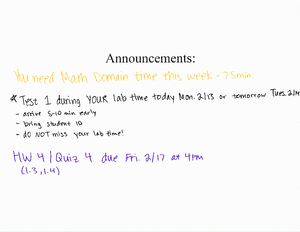 Announcements:
You need Math Domain time this week - 75min
* Test 1 during YOUR lab time today Mon. 2/13 or tomorrow Tues. 2/14
- arrive 5-10 min early
- bring student ID
- do NOT miss your lab time!
HW 4 / Quiz 4 due Fri. 2/17 at 4PM
(1.3, 1.4)